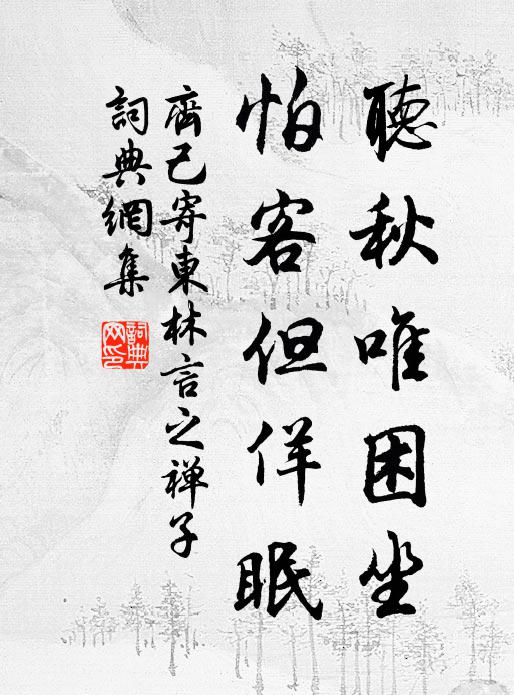 聽秋唯困坐
怕客但佯眠
齊己寄東林言之禪子
詞典網集
詞典
网印